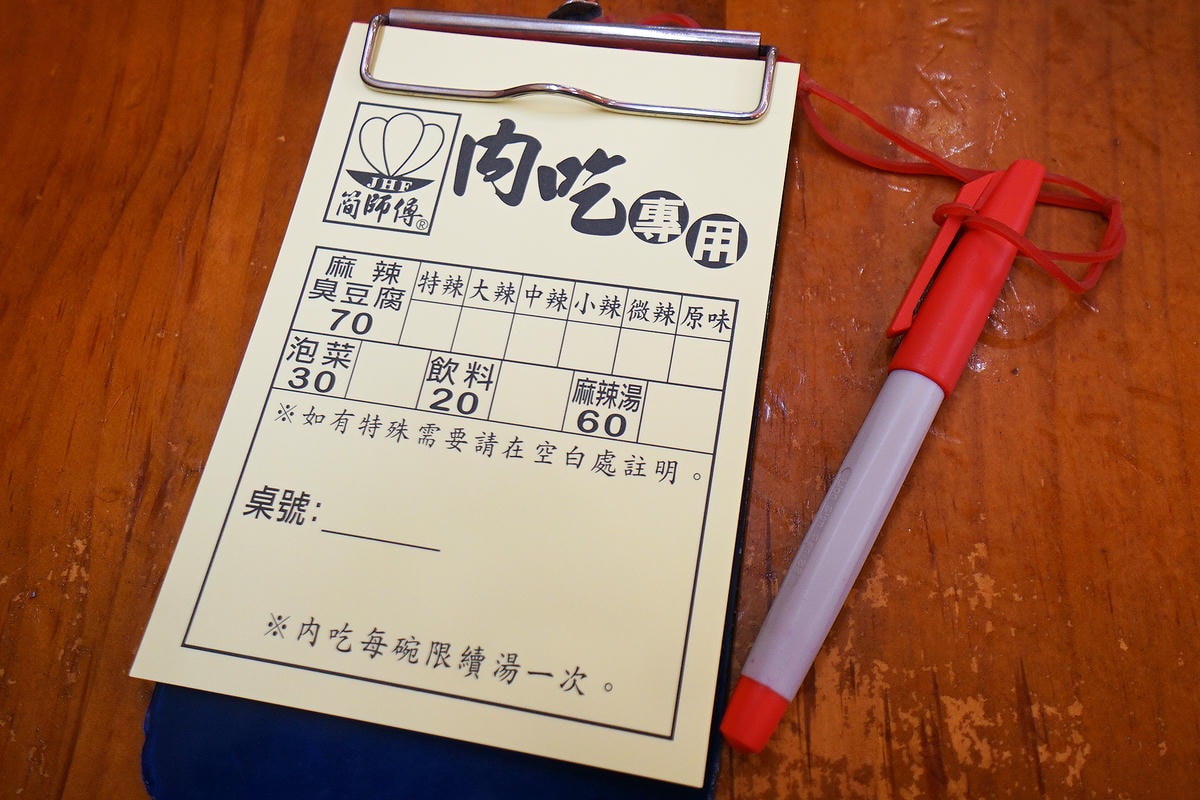 JHF
簡師傅®
内吃專用
麻辣臭豆腐 70 特辣 大辣 中辣 小辣 微辣 原味
泡菜 30 飲料 20 麻辣湯 60
※如有特殊需要請在空白處註明。
桌號:______
※內吃每碗限續湯一次。